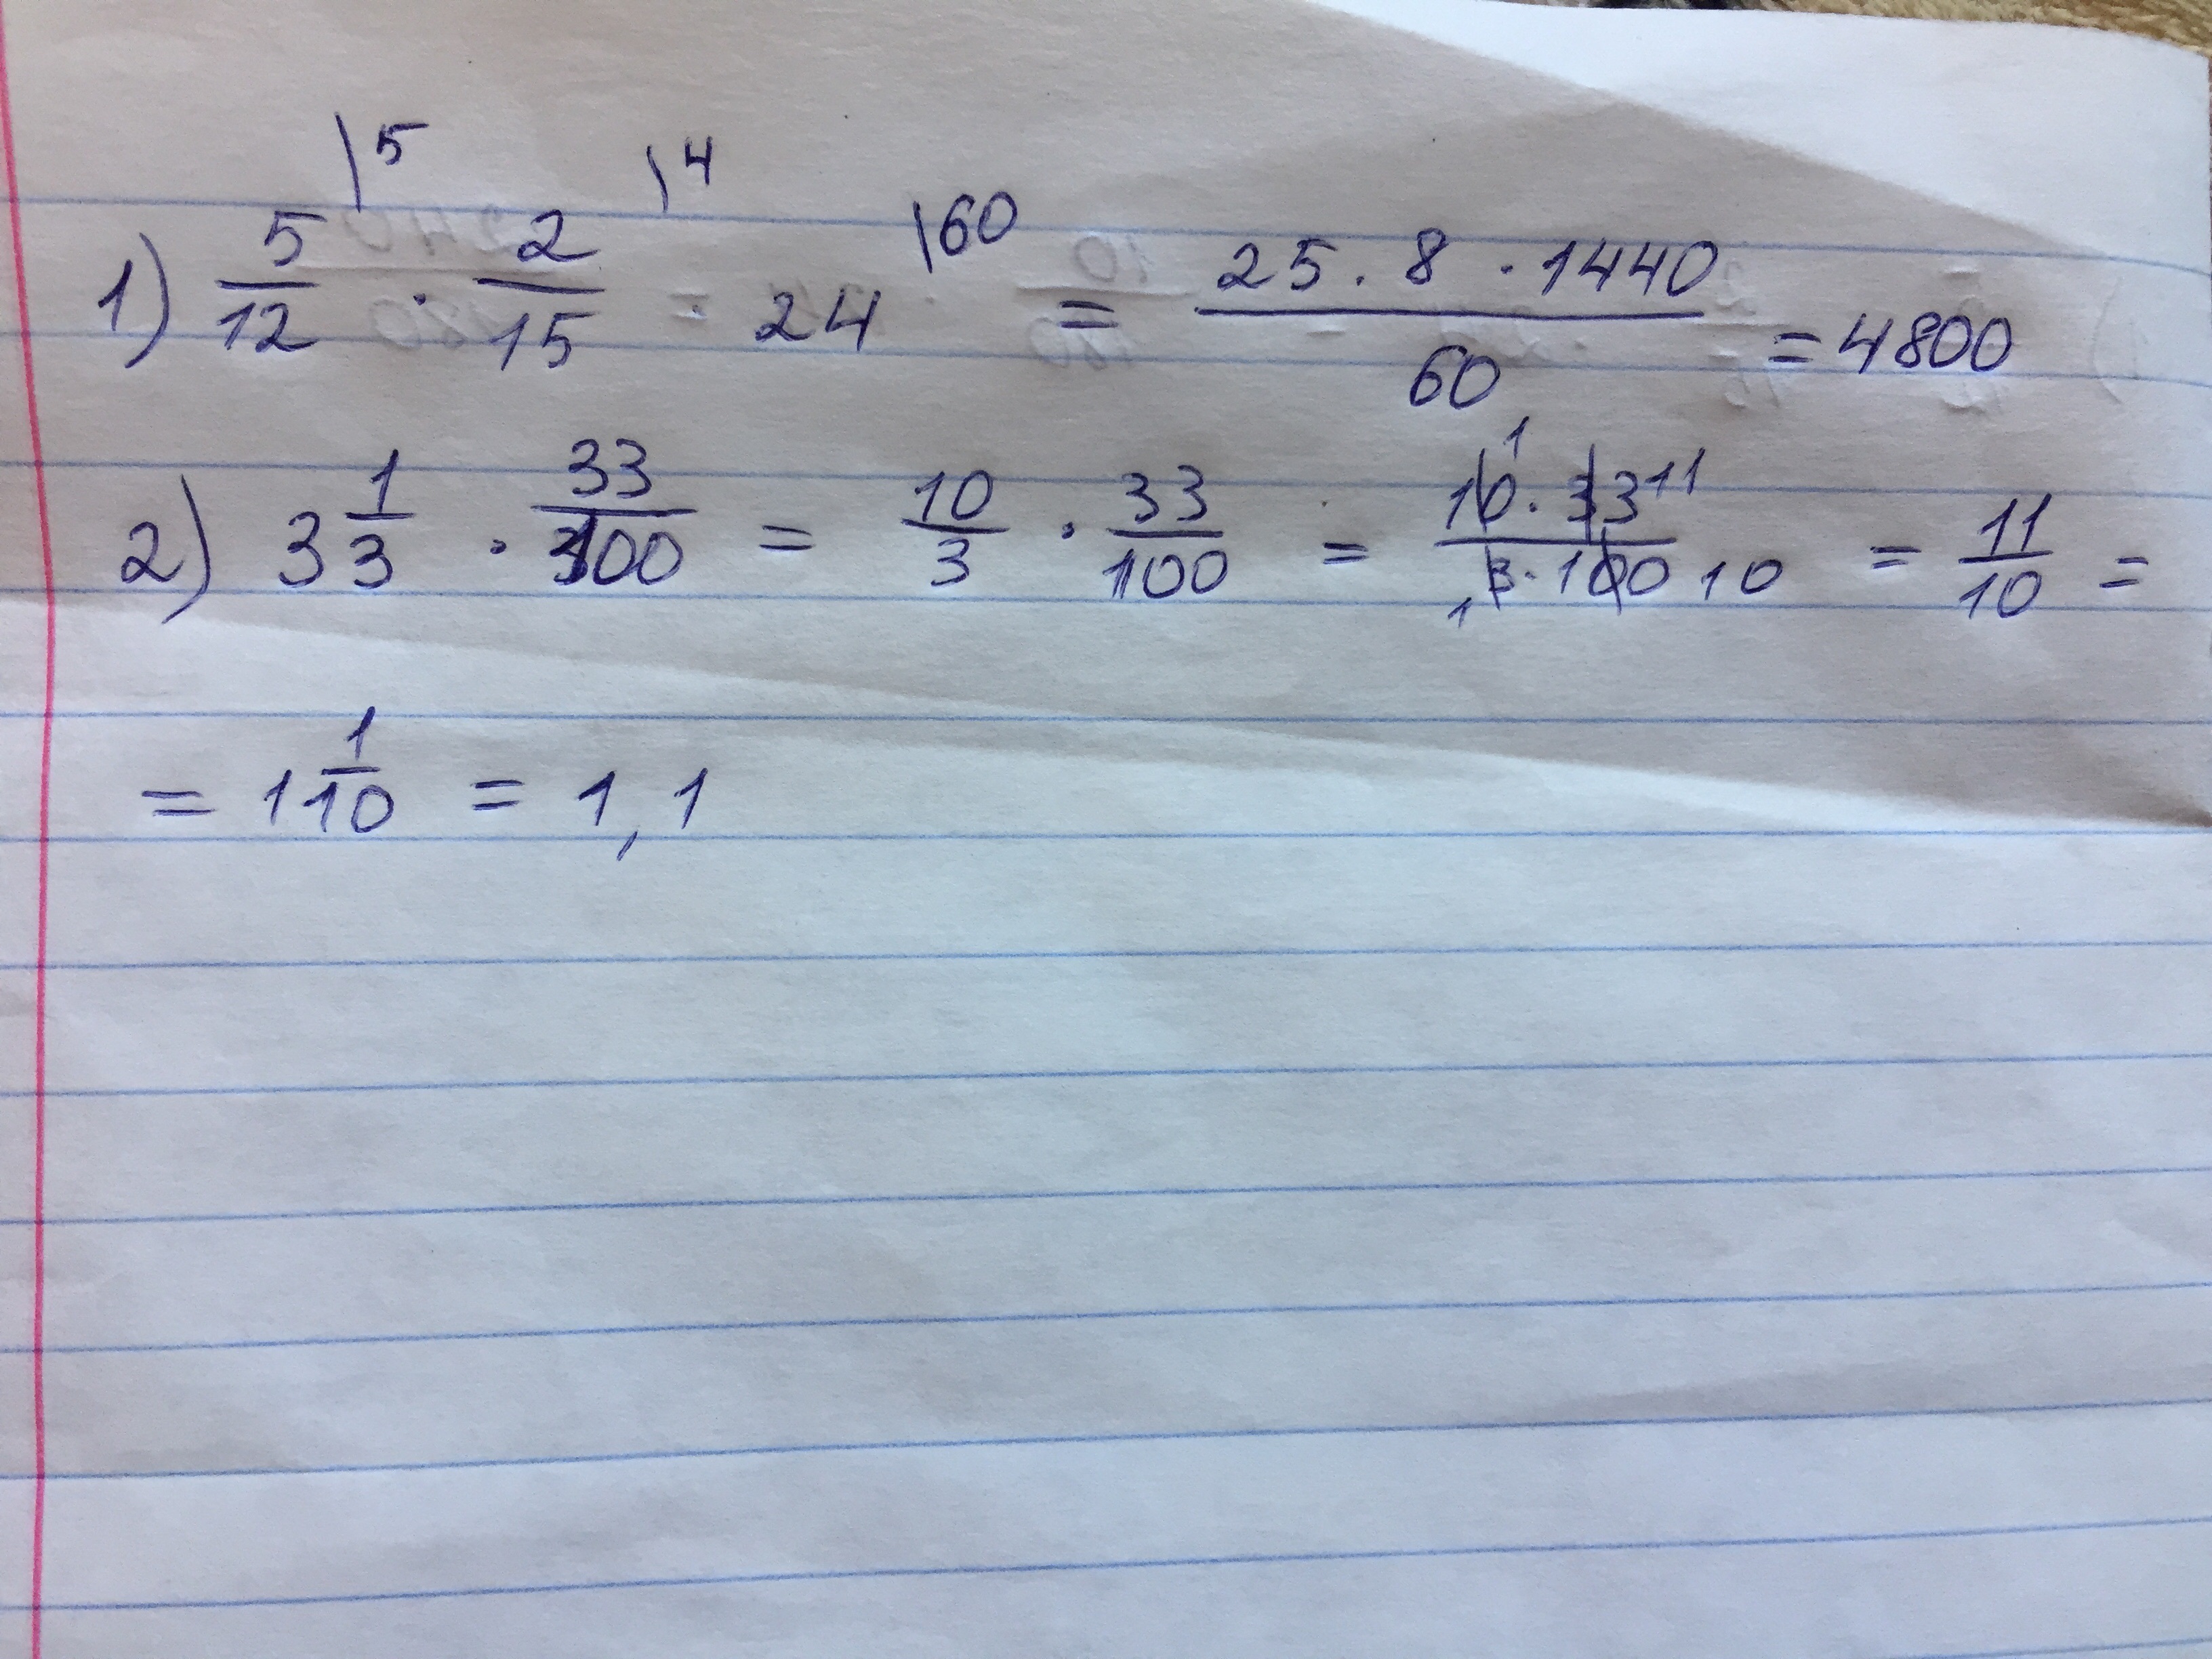 1) 5/12 \5 · 2/15 \4 · 24 \60 = 25 · 8 · 1440 / 60 = 4800
2) 3 1/3 · 33/100 = 10/3 · 33/100 = 10 1 · 33 11 / 1 3 · 100 10 = 11/10 =
= 1 1/10 = 1,1